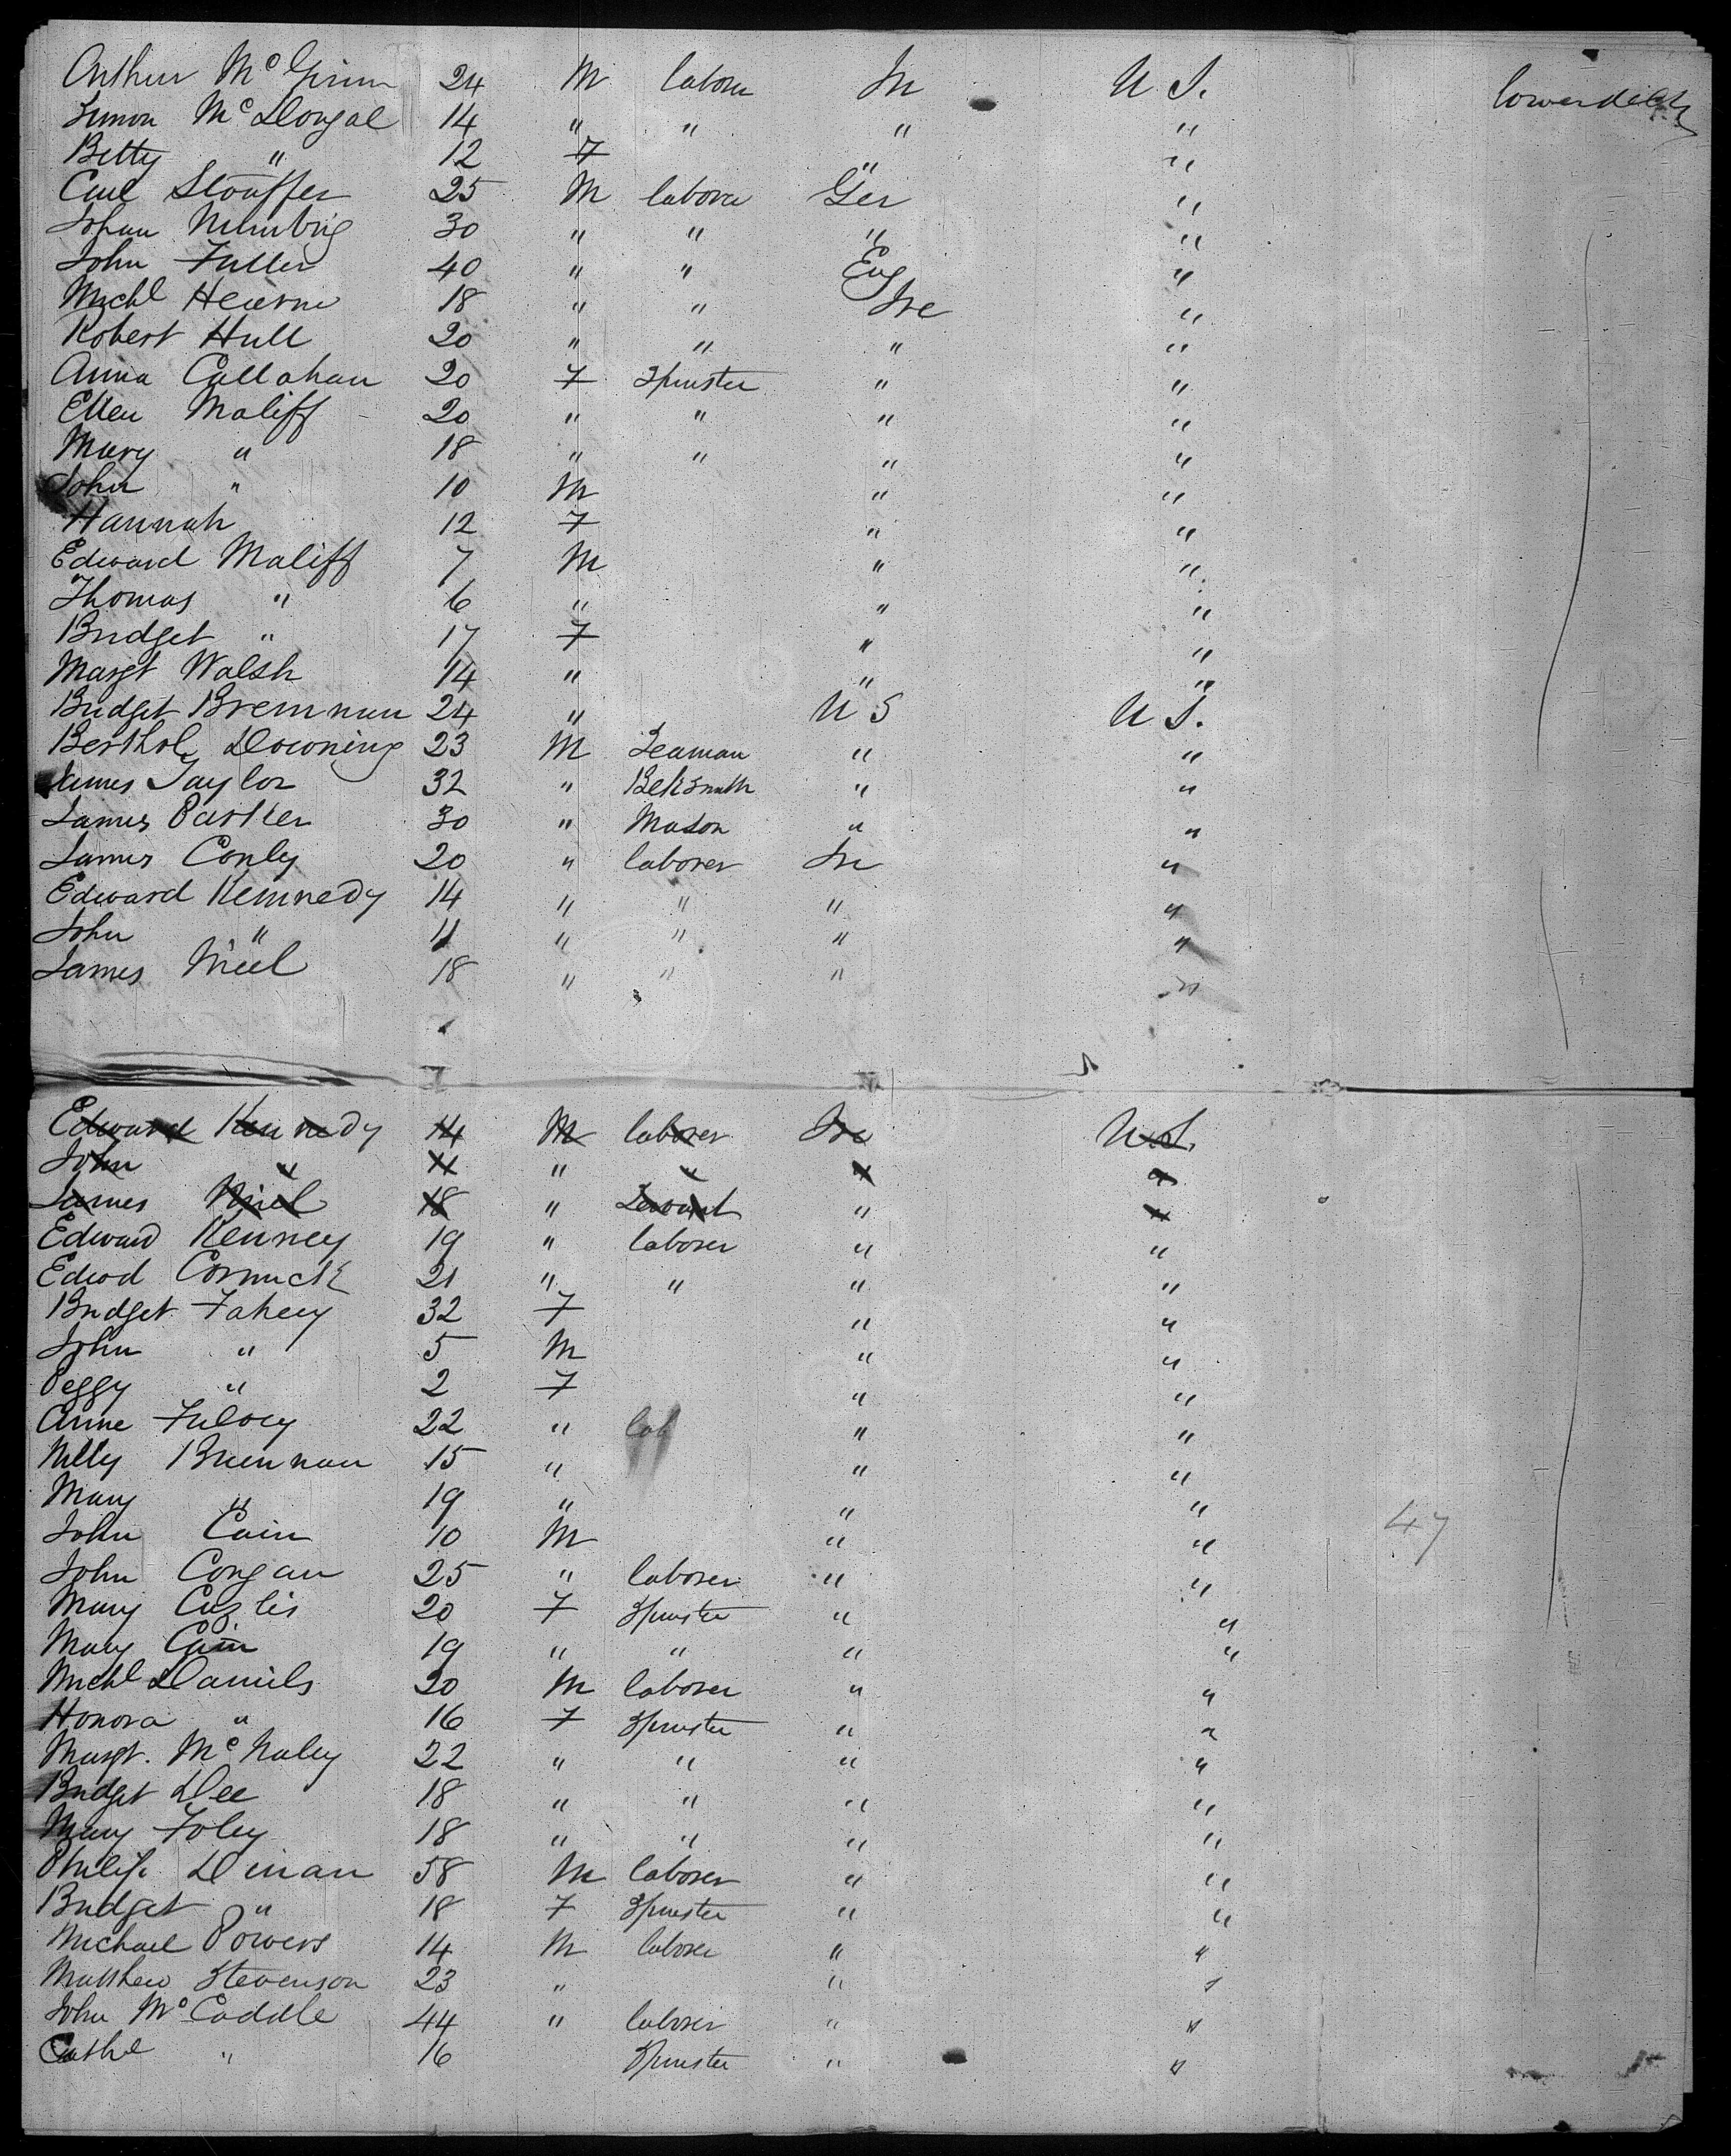 Arthur McGinn 24 M labour Ire U S. lower deck
Simon McDougal 14 " " " "
Betty " 12 F " "
Carl Stouffer 25 M labora Ger "
Johan 30 " " " "
John Fuller 40 " " Eng "
Michl Hearne 18 " " Ire "
Robert Hull 20 " " " "
Anna Callahan 20 F Spinster " "
Ellen Maliff 20 " " " "
Mary " 18 " " " "
John " 10 M " "
Hannah 12 F " "
Edward Maliff 7 M " "
Thomas " 6 " " "
Bridget " 17 F " "
Margt Walsh 14 " " "
Bridget Brennnan 24 " U S U S.
Berthol Downing 23 M Seaman " "
James Taylor 32 " Blksmith " "
James Parker 30 " Mason " "
James Conly 20 " laborer Ire "
Edward Kennnedy 14 " " " "
John " 11 " " " "
James Niel 18 " " " "
Edward Kennedy 14 M laborer Ire U.S.
John " 11 " " " "
James Niel 18 " Servant " "
Edward Kenney 19 " laborer " "
Edwd Cormick 21 " " " "
Bridget Fahey 32 F " "
John " 5 M " "
Peggy " 2 F " "
Anne Fulvey 22 " lab " "
Nelly Brennan 15 " " "
Mary " 19 " " "
John Cain 10 M " " 47
John Congan 25 " laborer " "
Mary 20 F Spinster " "
Mary Cain 19 " " " "
Michl Daniels 20 M laborer " "
Honora " 16 F Spinster " "
Margt. McNaley 22 " " " "
Bridget Dee 18 " " " "
Mary Foley 18 " " " "
Philip Dinan 58 M laborer " "
Bridget " 18 F Spinster " "
Michael Powers 14 M labore " "
Matthew Stevenson 23 " " "
John McCaddle 44 " laborer " "
Cathe " 16 Spinster " "